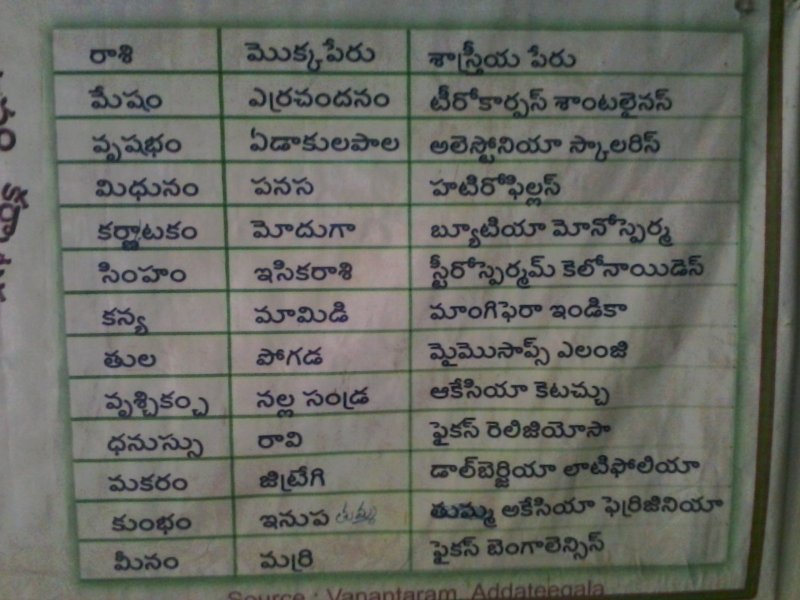 రాశి మొక్కపేరు శాస్త్రీయ పేరు
మేషం ఎర్రచందనం టీరోకార్పస్ శాంటలైనస్
వృషభం ఏడాకులపాల అలెస్టోనియా స్కాలరిస్
మిధునం పనస హటిరోఫిల్లస్
కర్ణాటకం మోదుగా బ్యూటియా మోనోస్పెర్మ
సింహం ఇసికరాశి స్టీరోస్పెర్మమ్ కెలోనాయిడెస్
కన్య మామిడి మాంగిఫెరా ఇండికా
తుల పోగడ మైమొసాప్స్ ఎలంజి
వృశ్చికంచ్ఛి నల్ల సండ్ర ఆకేసియా కెటచ్చు
ధనుస్సు రావి ఫైకస్ రెలిజియోసా
మకరం జిట్రేగి డాల్‌బెర్జియా లాటిఫోలియా
కుంభం ఇనుప తుమ్మ తుమ్మ అకేసియా ఫెర్రిజినియా
మీనం మర్రి ఫైకస్ బెంగాలెన్సిస్
Source : Vanantaram, Addateegala